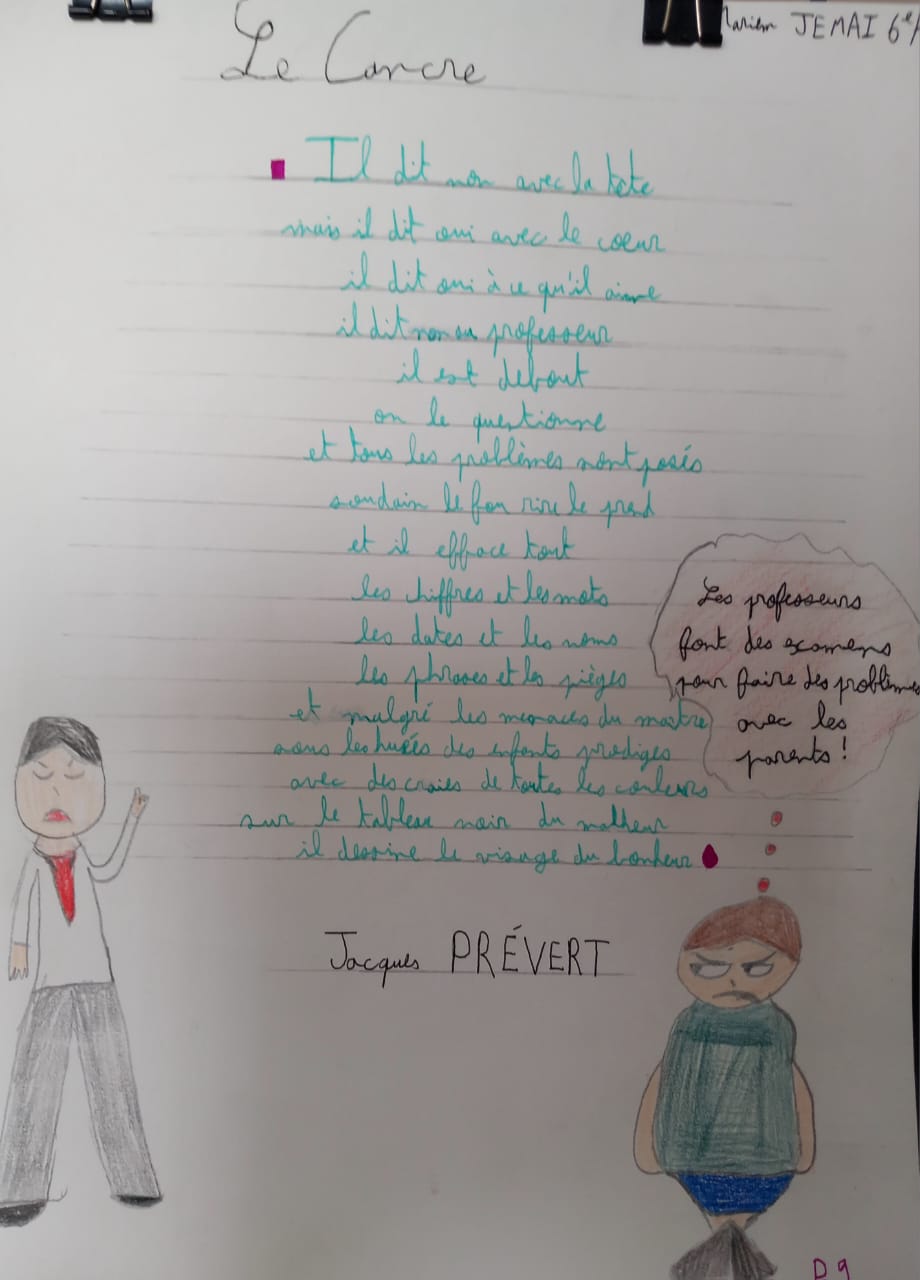 Mariem JEMAI 6e
Le Cancre
Il dit non avec la tête
mais il dit oui avec le coeur
il dit oui à ce qu'il aime
il dit non au professeur
il est debout
on le questionne
et tous les problèmes sont posés
soudain le fou rire le prend
et il efface tout
les chiffres et les mots
les dates et les noms
les phrases et les pièges
et malgré les menaces du maître
sous les huées des enfants prodiges
avec des craies de toutes les couleurs
sur le tableau noir du malheur
il dessine le visage du bonheur
Jacques PRÉVERT
Les professeurs
font des examens
pour faire des problèmes
avec les
parents !